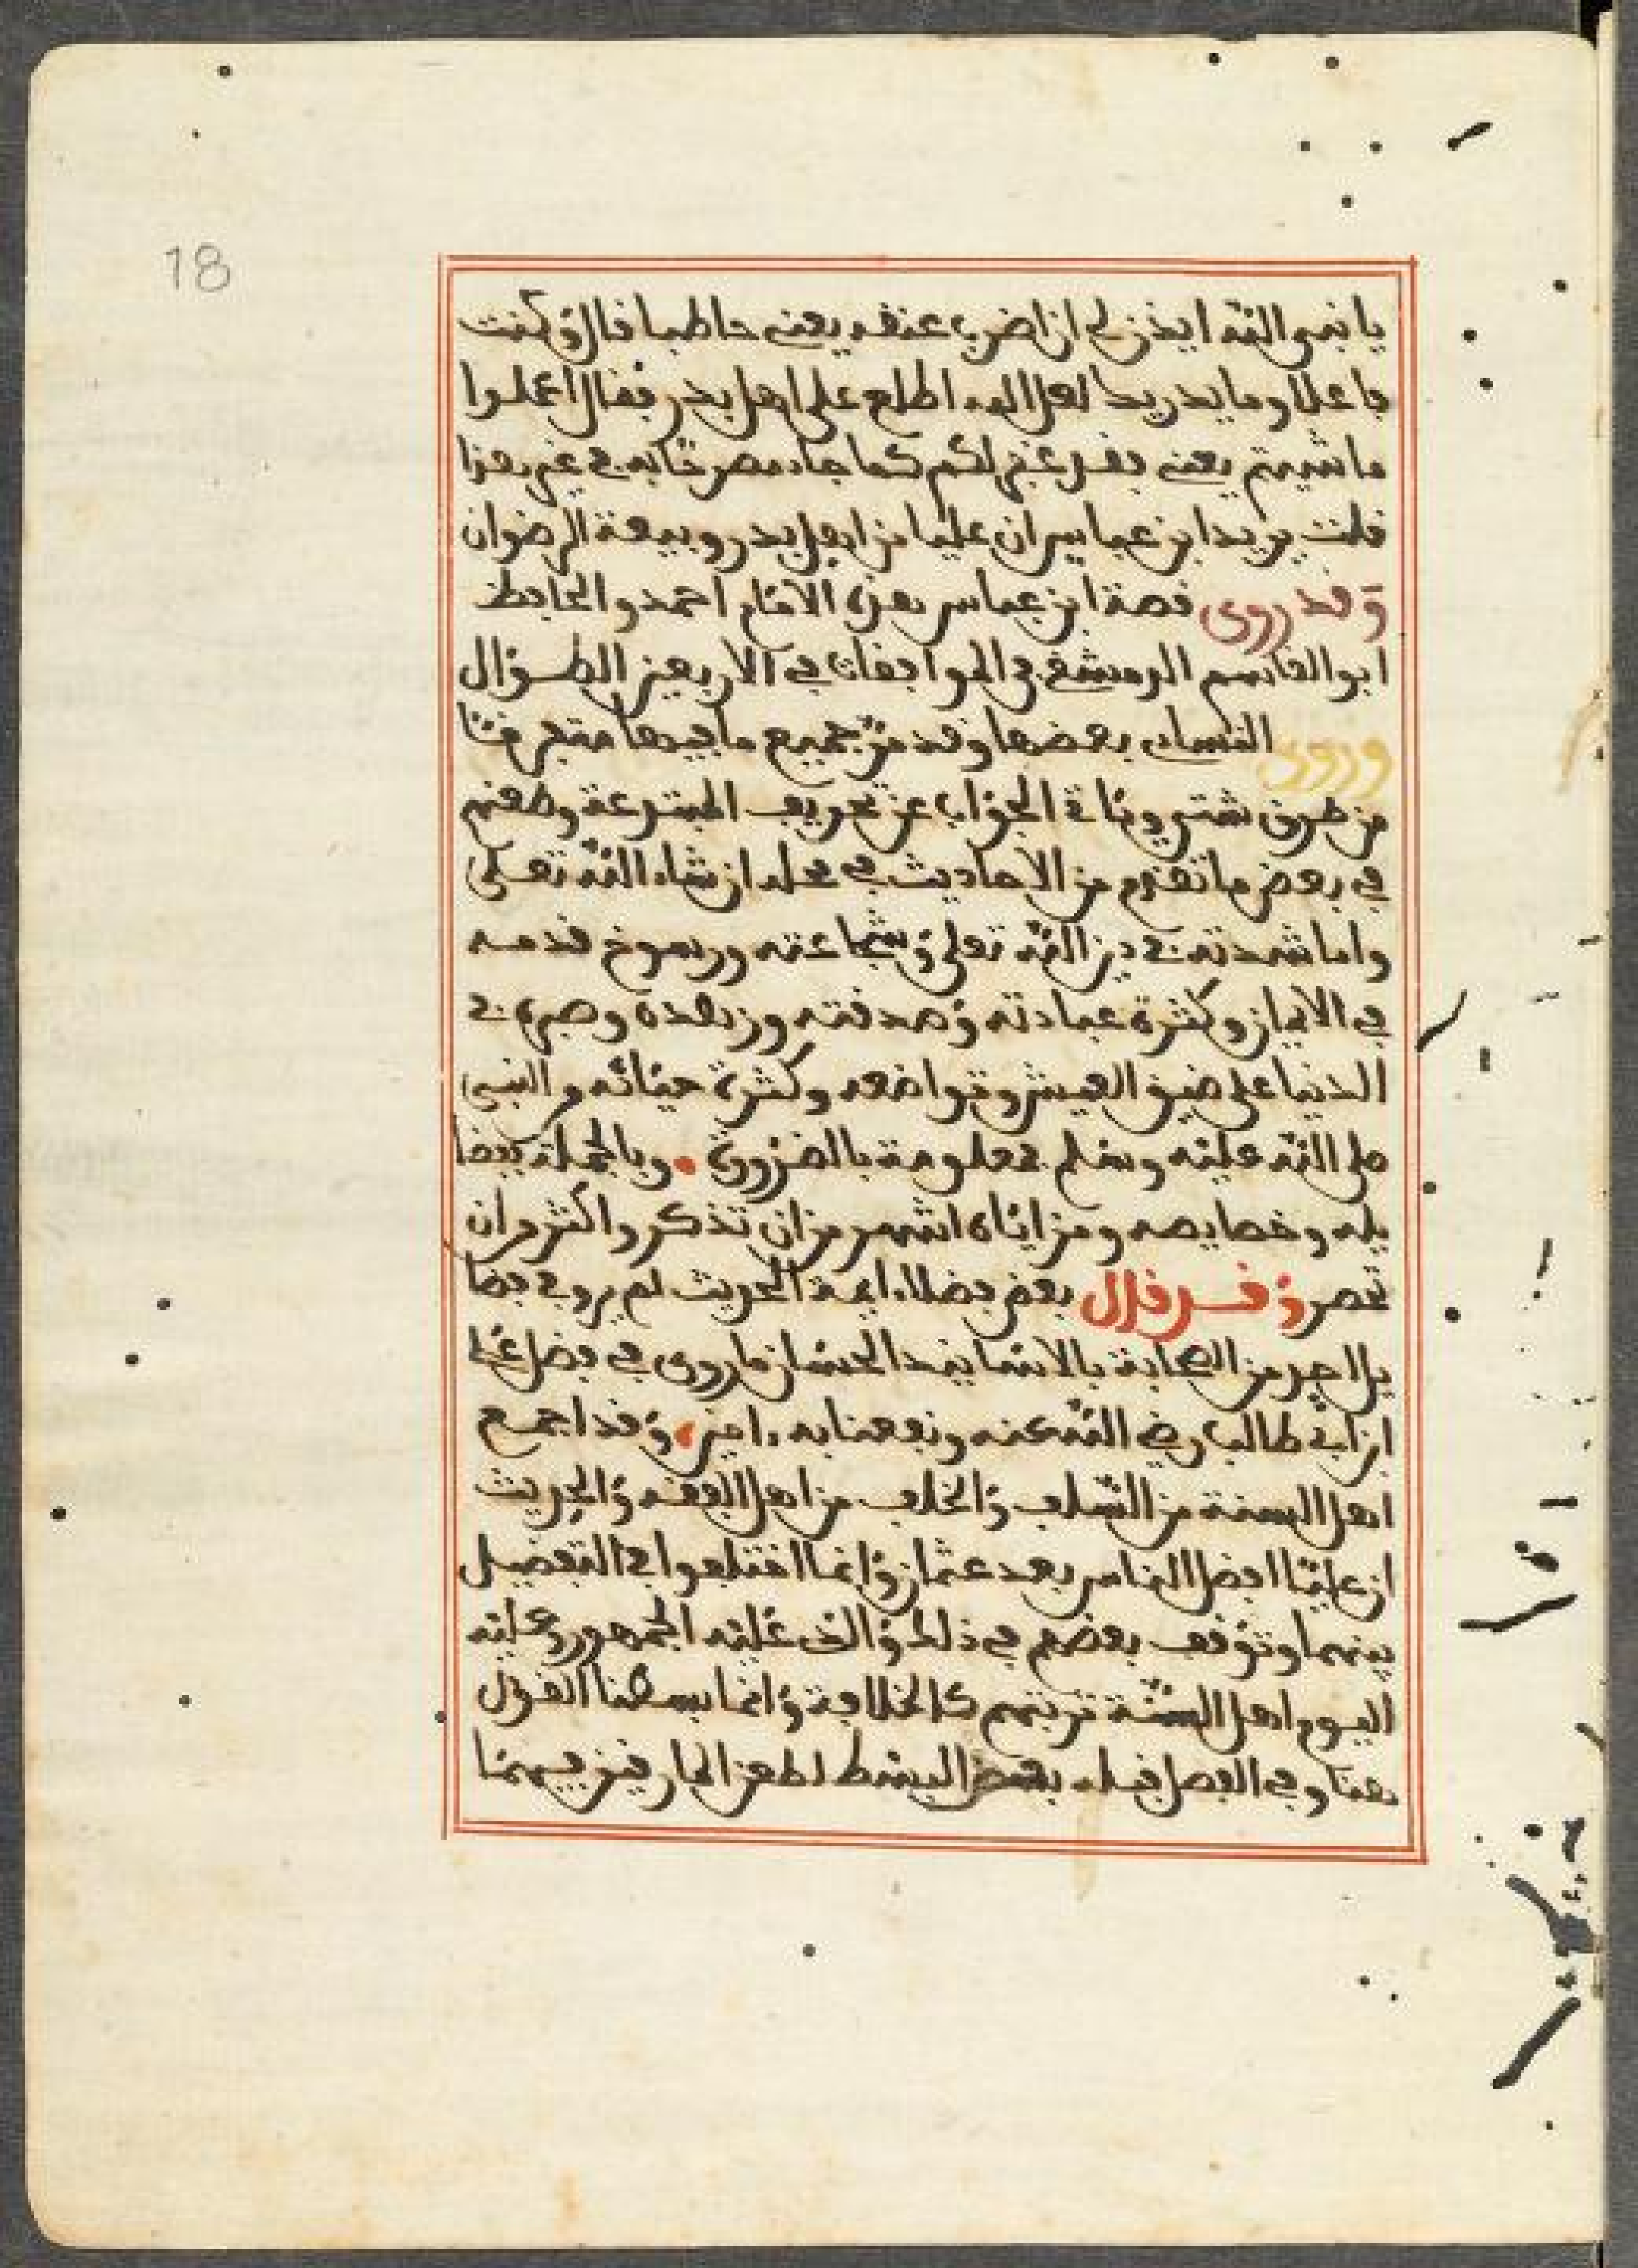 18
يا نبي الله ايذن لي ان اضرب عنقه يعني حاطبا قال وكنت
فاعلا وما يدريك لعل الله اطلع على اهل بدر فقال اعملوا
ما شيتم يعني فقد غفر لكم كما جاء مصرحا به في غير هذا
قلت يريد ابن عباس ان عليا من اهل بدر وبيعة الرضوان
وقد روى قصة ابن عباس هذه الامام احمد والحافظ
ابو القاسم الدمشقي في الموافقات في الاربعين الطوال
وروى النساي بعضها وقد مر جميع ما فيها متفرقا
من طرق شتى وياتي الجواب عن تحريف المبتدعة وطعنهم
في بعض ما تقدم من الاحاديث في محله ان شاء الله تعلى
واما شدته في دين الله تعلى وشجاعته ورسوخ قدمه
في الايمان وكثرة عبادته وصدقته وزهده وصبره في
الدنيا على ضيق العيش وتواضعه وكثرة حيائه من النبي
صلى الله عليه وسلم فمعلومة بالضرورة وبالجملة ففضا
يله وخصايصه ومزاياه اشهر من ان تذكر واكثر من ان
تحصر وقد قال بعض فضلاء ايمة الحديث لم يرو في فضا
يل احد من الصحابة بالاسانيد الحسان ما روى في فضل علي
ابن ابي طالب رضي الله عنه ونفعنا به ءامين وقد اجمع
اهل السنة من السلف والخلف من اهل الفقه والحديث
ان عليا افضل الناس بعد عثمان وانما اختلفوا في التفضيل
بينهما وتوقف بعضهم في ذلك والذي عليه الجمهور وعليه
اليوم اهل السنة ترتبهم كالخلافة وانما بسطنا القول
هنا وفي الفصل قبله بعض البسط لطعن المارقين فيهما